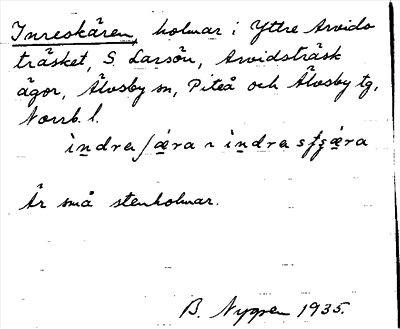 Inreskären, holmar i Yttre Arvids
träsket, S. Larsön, Arvidsträsk
ägor, Älvsby sn, Piteå och Älvsby tg,
Norrb. l.
Är små stenholmar.
B. Nygren 1935.